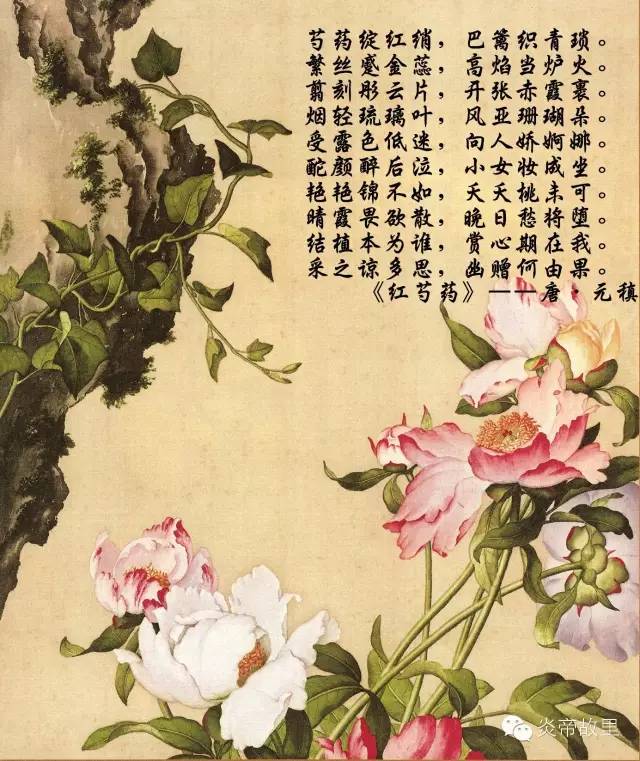 芍药绽红绡，巴篱织青琐。
繁丝蹙金蕊，高焰当炉火。
翦刻彤云片，开张赤霞裹。
烟轻琉璃叶，风亚珊瑚朵。
受露色低迷，向人娇婀娜。
酡颜醉后泣，小女妆成坐。
艳艳锦不如，夭夭桃未可。
晴霞畏欲散，晚日愁将堕。
结植本为谁，赏心期在我。
采之谅多思，幽赠何由果。
《红芍药》——唐·元稹
炎帝故里